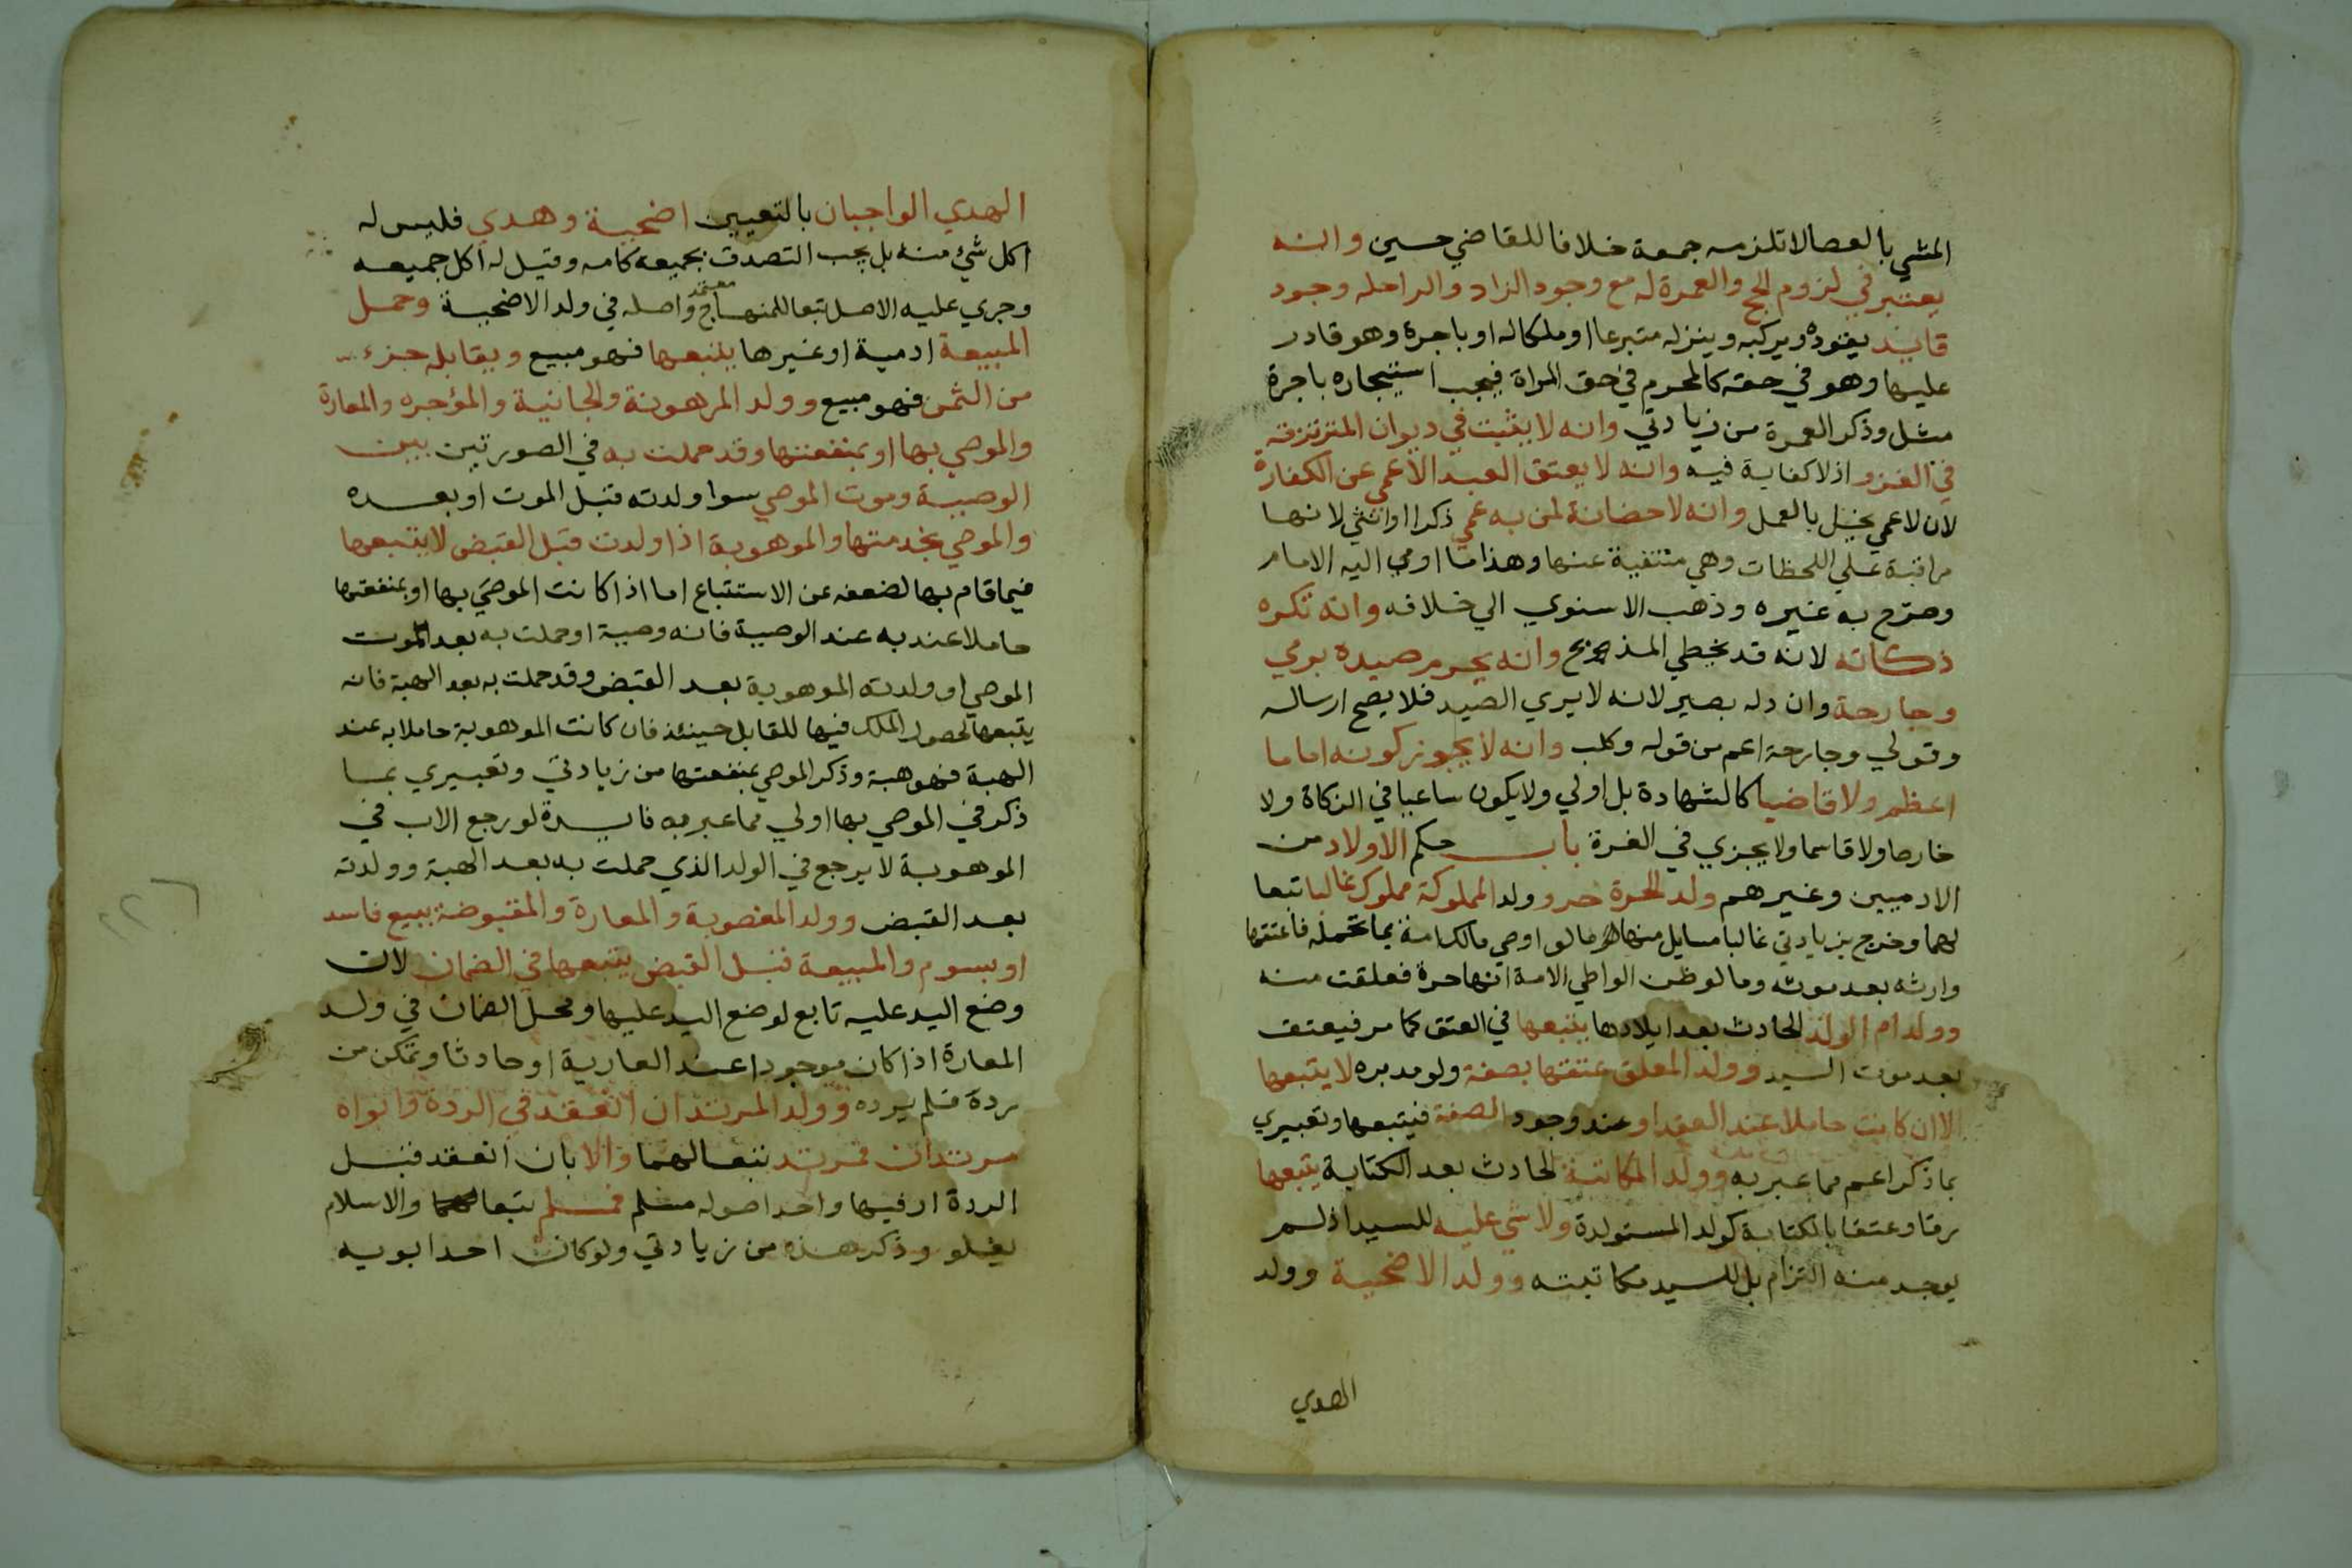 المشي بالعصا لا تلزمه جمعة خلافا للقاضي حسين وانه
يعتبر في لزوم الحج والعمرة له مع وجود الزاد والراحله وجود
قايد يقوده ويركبه وينزله متبرعا او ملكا له او باجرة وهو قادر
عليها وهو في حقه كالمحرم في حق المراة فيجب استيجاره باجرة
مثل وذكر العمرة من زيادتي وانه لا يثبت في ديوان المترتزقة
في الغزو اذ لا كفاية فيه وانه لا يعتق العبد الاعمي عن الكفارة
لان لاعمي يخل بالعمل وانه لا حضانة لمن به عمي ذكرا او انثي لانها
مراقبة علي اللحظات وهي منتفية عنها وهذا ما اومي اليه الامام
وصرح به غيره وذهب الاسنوي الي خلافه وانه تكره
ذكاته لانه قد يخطي المذبح وانه يحرم صيده برمي
وجارحة وان دله بصير لانه لا يري الصيد فلا يصح ارساله
وقولي وجارحة اعم من قوله وكلب وانه لا يجوز كونه اماما
اعظم ولا قاضيا كالشهادة بل اولي ولا يكون ساعيا في الزكاة ولا
خارصا ولا قاسما ولا يجزي في الغرة باب حكم الاولاد من
الادميين وغيرهم ولد الحرة حر وولد المملوكة مملوك غالبا تبعا
لهما وخرج بزيادتي غالبا مسايل منها ما لو اوصي مالك امة بما تحمله فاعتقها
وارثه بعد موته وما لو ظن الواطي الامة انها حرة فعلقت منه
وولد ام الولد الحادث بعد ايلادها يتبعها في العتق كما مر فيعتق
بعد موت السيد وولد المعلق عتقها بصفة ولو مدبره لا يتبعها
الا ان كانت حاملا عند العقد او عند وجود الصفة فيتبعها وتعبيري
بما ذكر اعم مما عبر به وولد المكاتبة الحادث بعد الكتابة يتبعها
رقا وعتقا بالكتابة كولد المستولدة ولا شي عليه للسيد اذ لم
يوجد منه التزام بل للسيد مكاتبته وولد الاضحية وولد
الهدي
الهدي الواجبان بالتعيين اضحية وهدي فليس له
اكل شيء منه بل يجب التصدق بجميعه كامه وقيل له اكل جميعه
معتمد
وجري عليه الاصل تبعا للمنهاج واصله في ولد الاضحية وحمل
المبيعة ادمية او غيرها يتبعها فهو مبيع ويقابله جزء
من الثمن فهو مبيع وولد المرهونة والجانية والمؤجره والمعارة
والموصي بها او بمنفعتها وقد حملت به في الصورتين بين
الوصية وموت الموصي سوا ولدته قبل الموت او بعده
والموصي بخدمتها والموهوبة اذا ولدت قبل القبض لا يتبعها
فيما قام بها لضعفه عن الاستتباع اما اذا كانت الموصي بها او بمنفعتها
حاملا عند به عند الوصية فانه وصية او حملت به بعد موت
الموصي او ولدته الموهوبة بعد القبض وقد حملت به بعد الهبة فانه
يتبعها لحصول الملك فيها للقابل حينئذ فان كانت الموهوبة حاملا به عند
الهبة فهو هبة وذكر الموصي بمنفعتها من زيادتي وتعبيري بما
ذكر في الموصي بها اولي مما عبر به فايدة لو رجع الاب في
الموهوبة لا يرجع في الولد الذي حملت به بعد الهبة وولدته
بعد القبض وولد المغصوبة والمعارة والمقبوضة ببيع فاسد
او بسوم والمبيعة قبل القبض يتبعها في الضمان لان
وضع اليد عليه تابع لوضع اليد عليها ومحل الضمان في ولد
المعارة اذا كان موجودا عند العارية او حادثا وتمكن من
رده فلم يرده وولد المرتد ان انعقد في الردة وابواه
مرتدان فمرتد تبعا لهما والا بان انعقد قبل
الردة او فيها واحد اصوله مسلم فمسلم تبعا والاسلام
يعلو وذكر هذه من زيادتي ولو كان احد ابويه